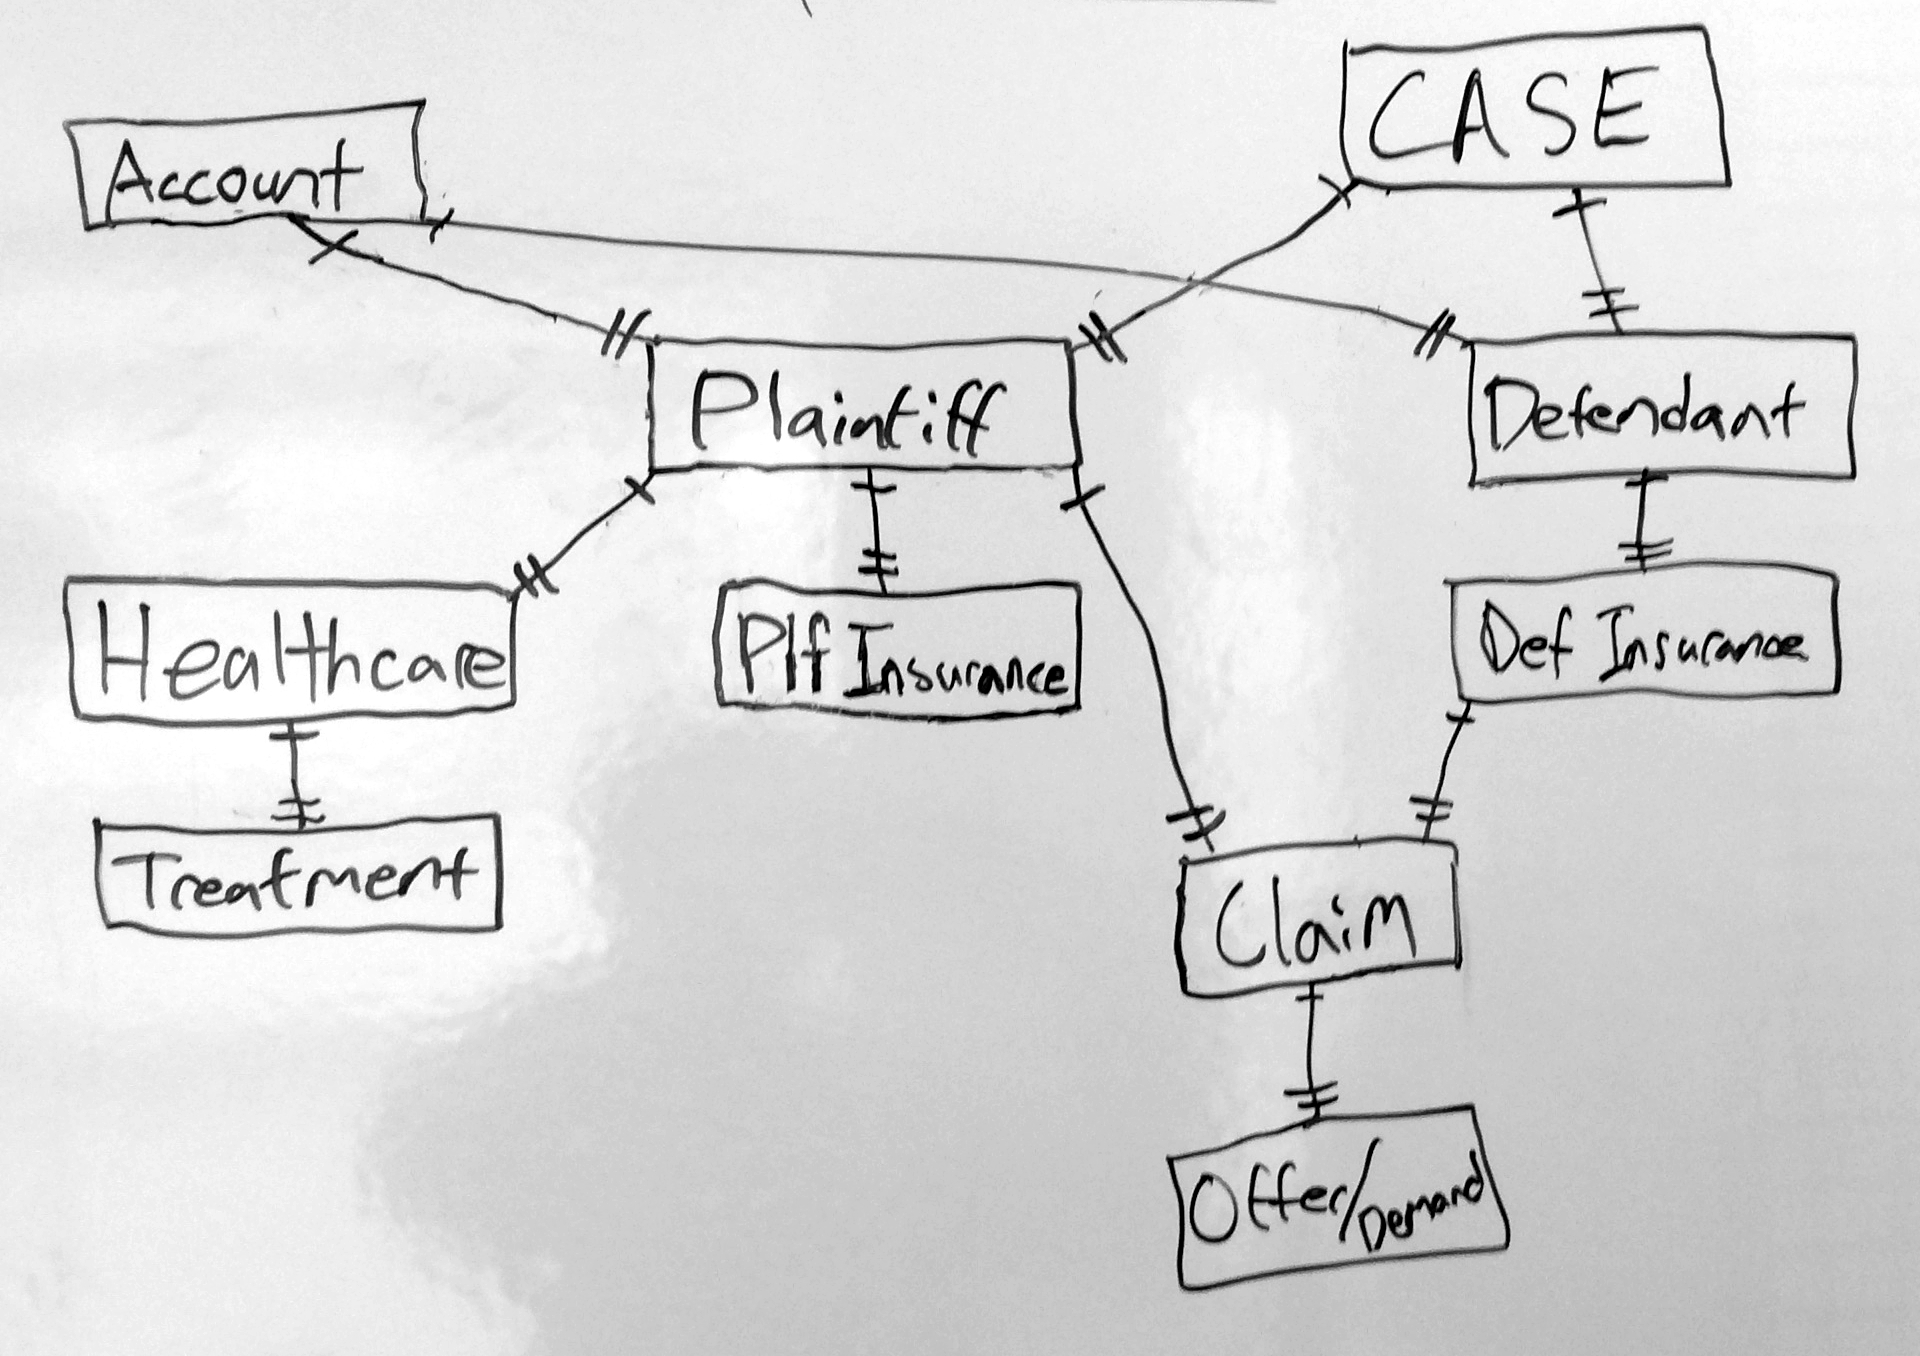 CASE
Account
Plaintiff
Defendant
Healthcare
Plf Insurance
Def Insurance
Treatment
Claim
Offer/Demand